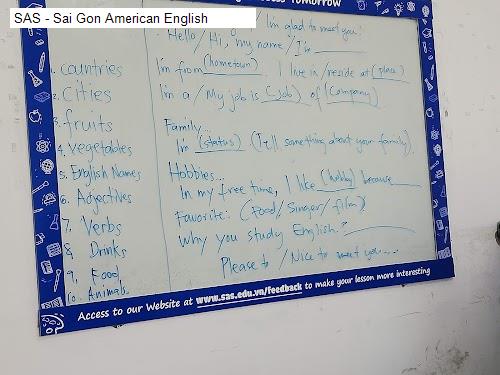 SAS - Sai Gon American English
Tomorrow
/ I'm glad to meet you.
Hello / Hi, my name / I'm
I'm from (hometown). I live in/reside at (place)
I'm a / My job is (Job) of (Company)
Family...
I'm (status). (Tell something about your family)
Hobbies...
In my free time, I like (hobby) because
Favorite: (Food/Singer/film)
Why you study English?
Please to / Nice to meet you...
1. countries
2. Cities
3. fruits
4. Vegetables
5. English Names
6. Adjectives
7. Verbs
8. Drinks
9. Food
10. Animals
Access to our Website at www.sas.edu.vn/feedback to make your lesson more interesting